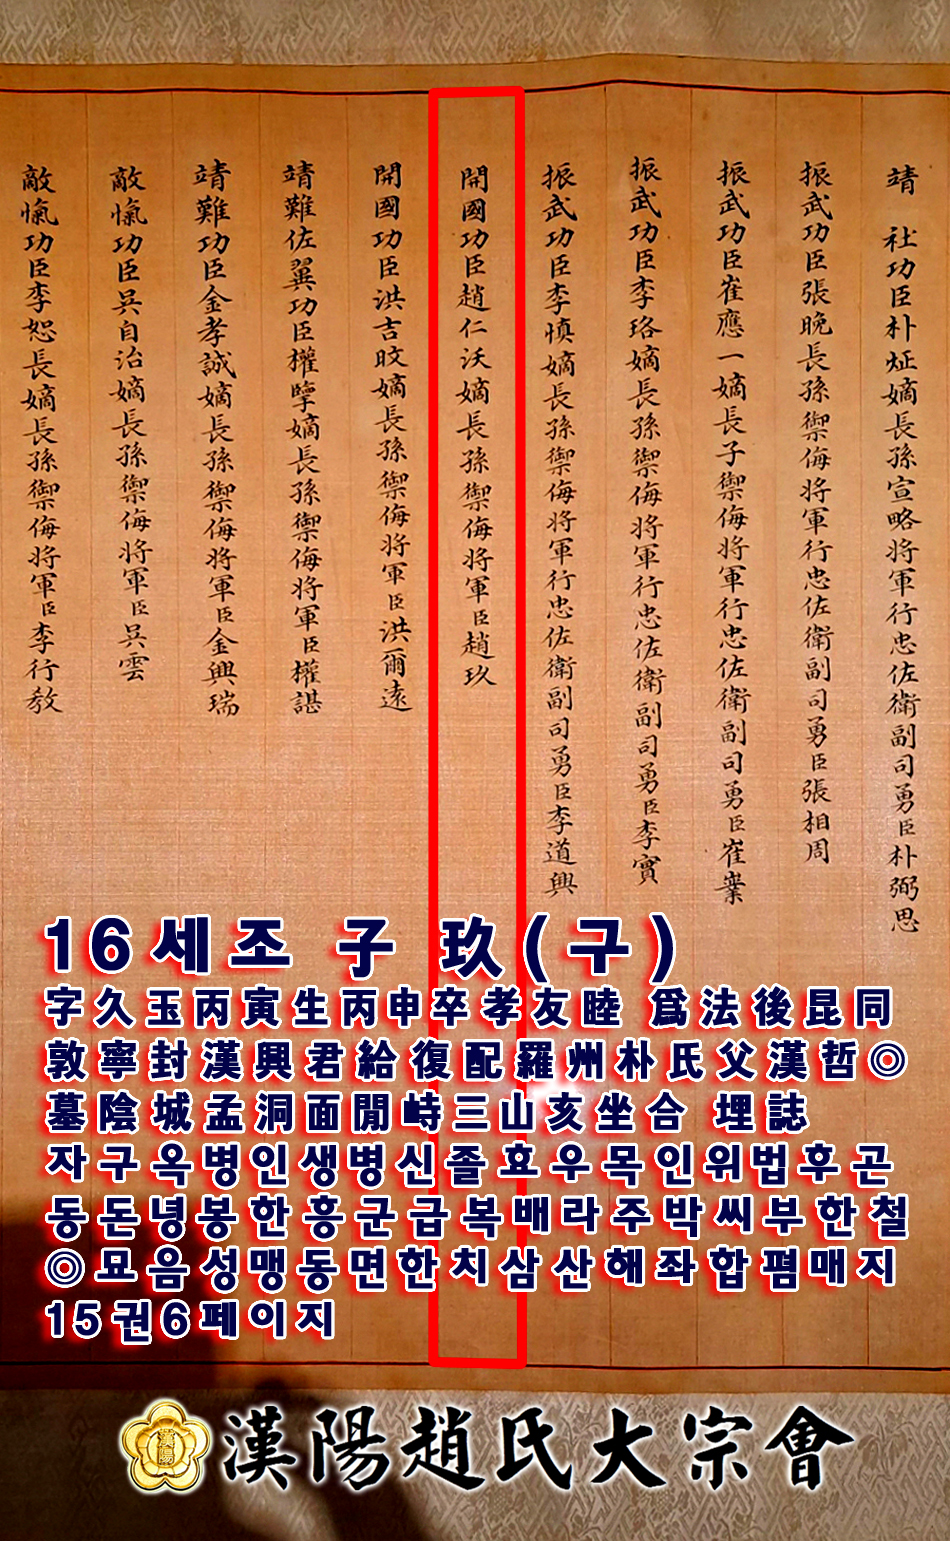 靖 社功臣朴炡嫡長孫宣略将軍行忠佐衛副司勇臣朴弼思
振武功臣張晚長孫禦侮将軍行忠佐衛副司勇臣張相周
振武功臣崔應一嫡長子禦侮将軍行忠佐衛副司勇臣崔嶪
振武功臣李珞嫡長孫禦侮将軍行忠佐衛副司勇臣李實
振武功臣李愼嫡長孫禦侮将軍行忠佐衛副司勇臣李道興
開國功臣趙仁沃嫡長孫禦侮将軍臣趙玖
開國功臣洪吉旼嫡長孫禦侮将軍臣洪爾遠
靖難佐翼功臣權擥嫡長孫禦侮将軍臣權諶
靖難功臣金孝誠嫡長孫禦侮将軍臣金興瑞
敵愾功臣吳自治嫡長孫禦侮将軍臣吳雲
敵愾功臣李恕長嫡長孫禦侮将軍臣李行敎
16세조 子 玖(구)
字久玉丙寅生丙申卒孝友睦 爲法後昆同
敦寧封漢興君給復配羅州朴氏父漢哲◎
墓陰城孟洞面閒峙三山亥坐合 埋誌
자구옥병인생병신졸효우목인위법후곤
동돈녕봉한흥군급복배라주박씨부한철
◎묘음성맹동면한치삼산해좌합폄매지
15권6페이지
漢陽
漢陽趙氏大宗會